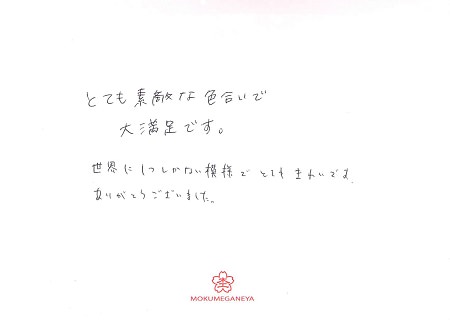 とても素敵な色合いで
大満足です。
世界に1つしかない模様で とても きれいです。
ありがとうございました。
MOKUMEGANEYA